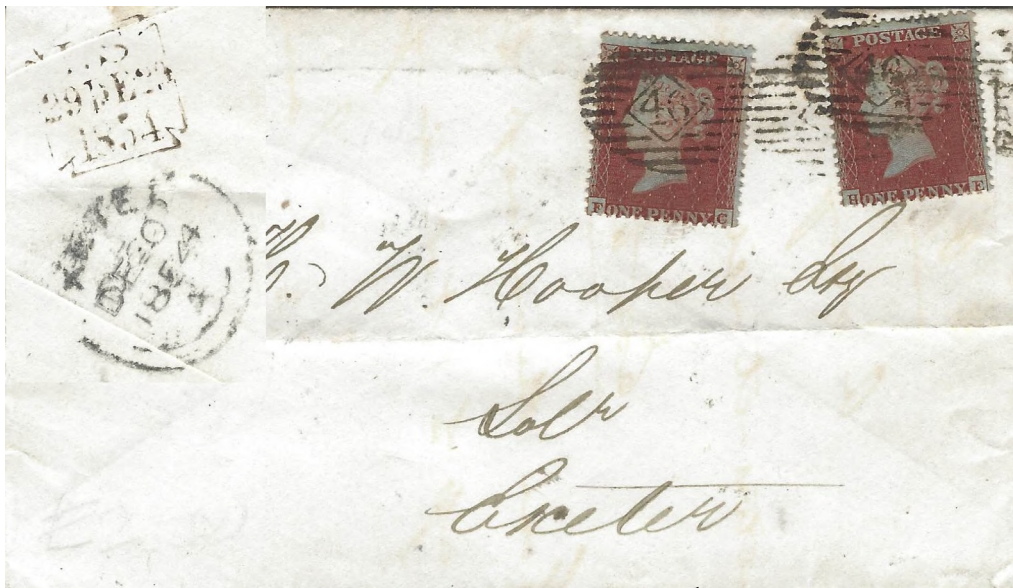 29 DE 29
1854
EXETER
DE 30
1854
A
POSTAGE
ONE PENNY
F G
POSTAGE
ONE PENNY
H E
W. Hooper Esq
Solr
Exeter